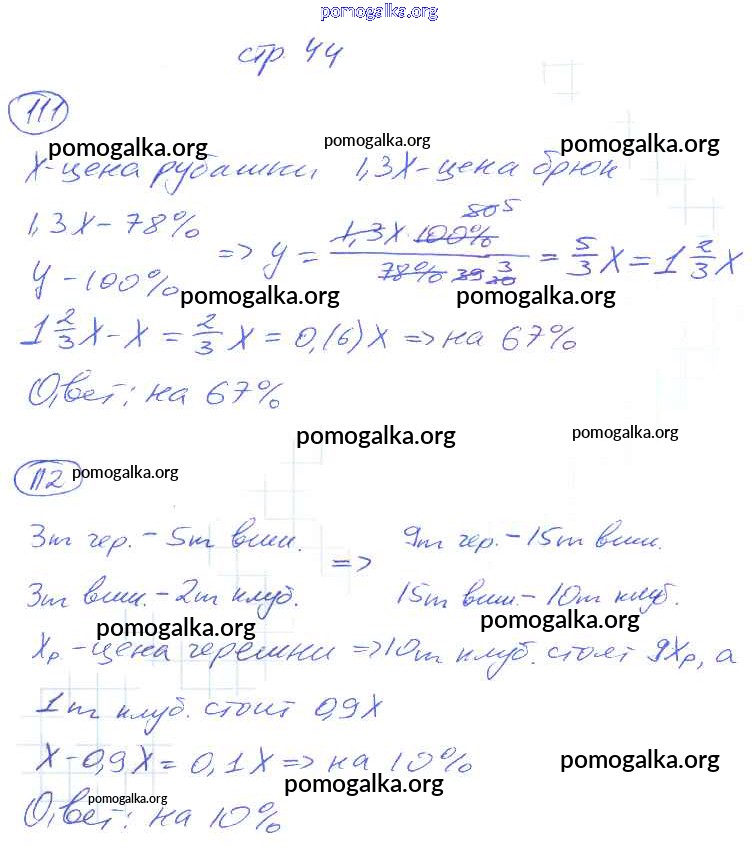 pomogalka.org
стр. 44
111
pomogalka.org pomogalka.org pomogalka.org
X - цена рубашки 1,3X - цена брюк
1,3X - 78%
y - 100%
=> y = 1,3X · 100% 50 5 / 78% 39 30 3 = 5/3 X = 1 2/3 X
pomogalka.org pomogalka.org
1 2/3 X - X = 2/3 X = 0,(6)X => на 67%
Ответ: на 67%
pomogalka.org pomogalka.org
112 pomogalka.org
3т чер. - 5т виш. => 9т чер. - 15т виш.
3т виш. - 2т клуб. 15т виш - 10т клуб.
pomogalka.org pomogalka.org
Xр. - цена черешни => 10т клуб. стоят 9Xр, а
1т клуб. стоит 0,9X
X - 0,9X = 0,1X => на 10%
pomogalka.org pomogalka.org
pomogalka.org
Ответ: на 10%